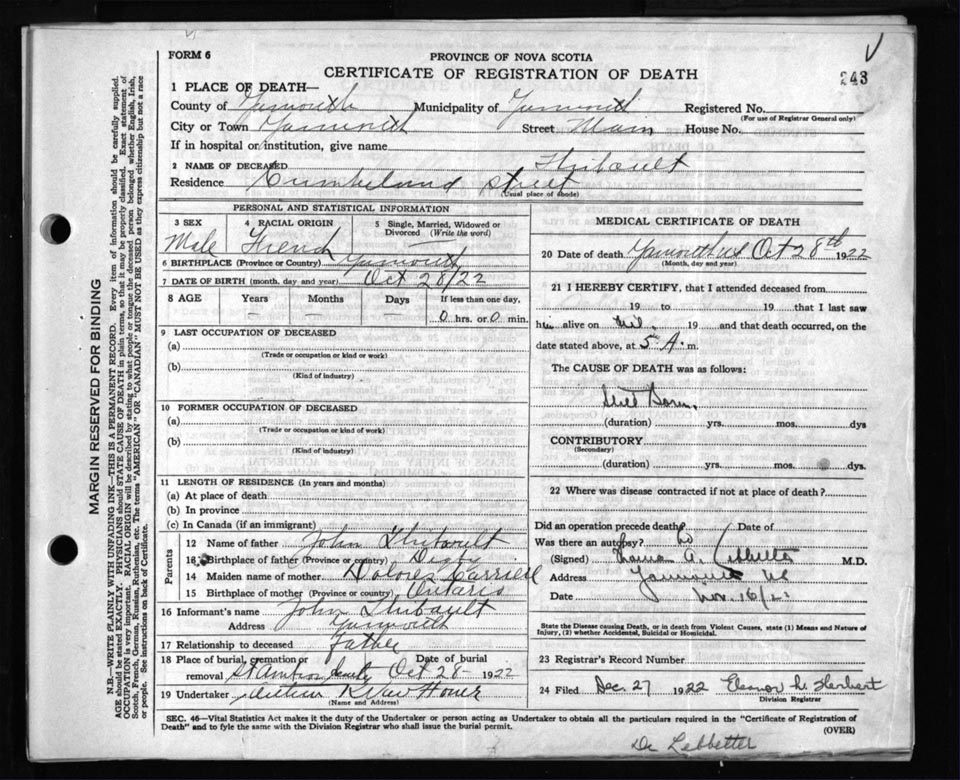 FORM 6
PROVINCE OF NOVA SCOTIA
CERTIFICATE OF REGISTRATION OF DEATH
243
1 PLACE OF DEATH—
County of Yarmouth Municipality of Yarmouth Registered No.
(For use of Registrar General only)
City or Town Yarmouth Street Main House No.
If in hospital or institution, give name
2 NAME OF DECEASED Thibault
Residence Cumberland Street
(Usual place of abode)
PERSONAL AND STATISTICAL INFORMATION
3 SEX Male
4 RACIAL ORIGIN French
5 Single, Married, Widowed or Divorced (Write the word) —
6 BIRTHPLACE (Province or Country) Yarmouth
7 DATE OF BIRTH (month, day and year) Oct 28/22
8 AGE Years Months Days If less than one day,
— — — 0 hrs. or 0 min.
9 LAST OCCUPATION OF DECEASED
(a)
(Trade or occupation or kind or work)
(b)
(Kind of industry)
10 FORMER OCCUPATION OF DECEASED
(a)
(Trade or occupation or kind of work)
(b)
(Kind of industry)
11 LENGTH OF RESIDENCE (In years and months)
(a) At place of death
(b) In province
(c) In Canada (if an immigrant)
Parents
12 Name of father John Thibault
13 Birthplace of father (Province or country) Digby
14 Maiden name of mother Dolores
15 Birthplace of mother (Province or country) Ontario
16 Informant's name John Thibault
Address Yarmouth
17 Relationship to deceased Father
18 Place of burial, cremation or removal Date of burial Oct 28 - 1922
19 Undertaker
(Name and Address)
MEDICAL CERTIFICATE OF DEATH
20 Date of death Yarmouth NS Oct 28th 1922
(Month, day and year)
21 I HEREBY CERTIFY, that I attended deceased from
19 to 19 that I last saw
him alive on 19 and that death occurred, on the
date stated above, at 5 A. m.
The CAUSE OF DEATH was as follows:
Still Born.
(duration) yrs. mos. dys
CONTRIBUTORY
(Secondary)
(duration) yrs. mos. dys.
22 Where was disease contracted if not at place of death?
Did an operation precede death? No Date of
Was there an autopsy?
(Signed) A. M.D.
Address Yarmouth NS
Date Nov. 16/22
State the Disease causing Death, or in death from Violent Causes, state (1) Means and Nature of Injury, (2) whether Accidental, Suicidal or Homicidal.
23 Registrar's Record Number
24 Filed Dec. 27 1922 Eleanor L. Herbert
Division Registrar
SEC. 46—Vital Statistics Act makes it the duty of the Undertaker or person acting as Undertaker to obtain all the particulars required in the "Certificate of Registration of
Death" and to fyle the same with the Division Registrar who shall issue the burial permit.
(OVER)
Dr Lebbetter
MARGIN RESERVED FOR BINDING
N.B.—WRITE PLAINLY WITH UNFADING INK—THIS IS A PERMANENT RECORD. Every item of information should be carefully supplied.
AGE should be stated EXACTLY. PHYSICIANS should STATE CAUSE OF DEATH in plain terms, so that it may be properly classified. Exact statement of
OCCUPATION is very important. RACIAL ORIGIN will be described by stating to what people or tongue the deceased person belonged whether English, Irish,
Scotch, French, German, Russian, Ruthenian, etc. The terms "AMERICAN" OR "CANADIAN" MUST NOT BE USED as they express citizenship but not a race
or people. See instructions on back of Certificate.